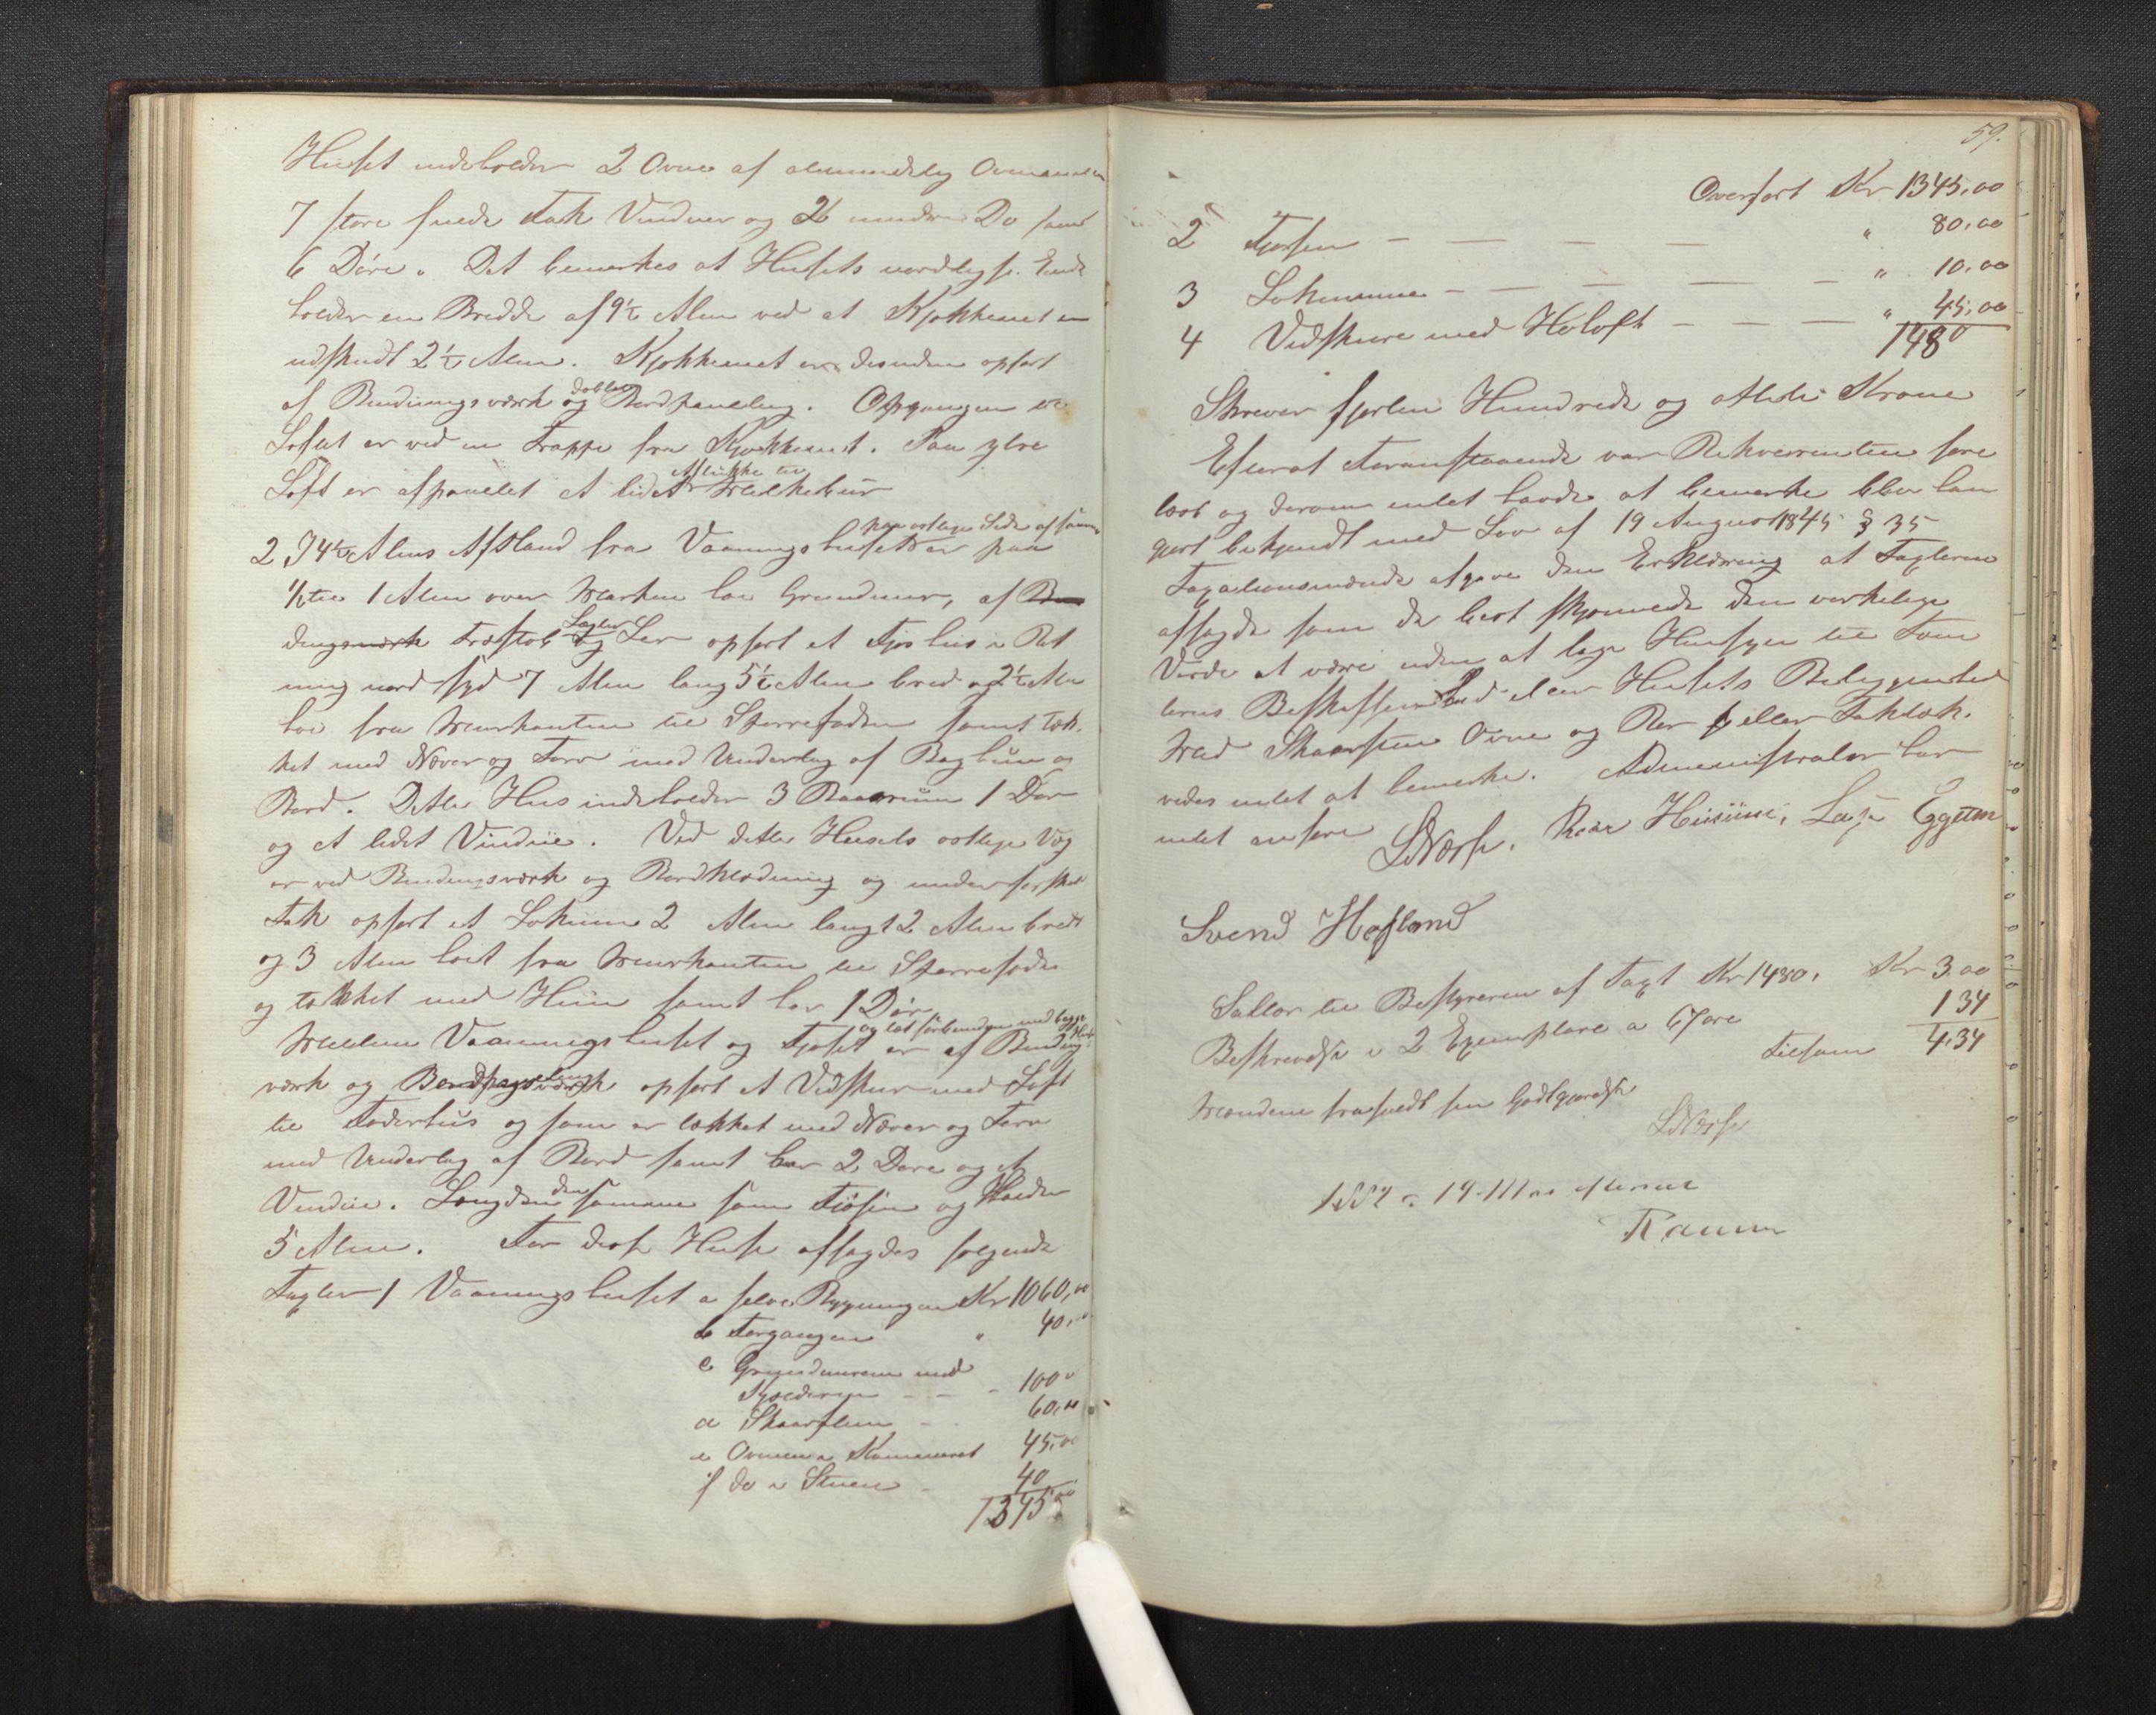 Huset indeholder 2 Ovne af almindelig
7 store 6 ruede Fak Vinduer og 2 mindre Do samt
6 Døre. Det bemærkes at Husets nordligste Ende
holder en Bredde af 9½ Alen ved at Kjøkkenet er
udskudt 2½ Alen. Kjøkkenet er desuden opført
af Bindingsværk og dobbel Bordpaneling. Opgangen til
Loftet er ved en Trappe fra Kjøkkenet. Paa ytre
Loft er afpanelet et lidet Aflukke til Melkebur
2 I 4½ Alens Afstand fra Vaaningshuset paa østlige Side af samme er paa
½ til 1 Alen over Marken høi Grundmur, af
Træstok Lægter og Ler opført et Fjøshus i Ret
ning nord syd 7 Alen lang 5½ Alen bred og 2½ Alen
høi fra Murkanten til Sperrefoden samt tæk-
ket med Næver og Torv med Underlag af Baghun og
Bord. Dette Hus indeholder 3 Baasrum 1 Dør
og et lidet Vindue. Ved dette Husets østlige Væg
er ved Bindingsværk og Bordklædning og under
Tak opført et Lokum 2 Alen langt 2 Alen bredt
og 3 Alen høit fra Murkanten til Sperrefoden
og tækket med Hun samt har 1 Dør.
Mellem Vaaningshuset og Fjøset og tæt forbunden med begge Huse er af Binding
værk og Bordpaneling opført et Vedskur med Loft
til Foderhus og som er tækket med Næver og Torv
med Underlag af Bord samt har 2 Døre og et
Vindue. Længden den samme som Fjøsen og Høiden
5 Alen. For disse Huse afsagdes følgende
Taxter 1 Vaaningshuset a selve Bygningen Kr 1060,00
b Forgangen " 40,00
c Grundmuren med
Kjælderen — — - 100 "
d Skorsten - 60,00
e Ovnen i Kammeret 45,00
f do i Stuen - 40
1345,00
59.
Overført Kr 1345,00
2 Fjøsen — — — — " 80,00
3 Lokumme — — — — — " 10,00
4 Vedskure med Høloft — — — " 45,00
1480
Skriver fjorten Hundrede og otteti Krone
Efterat Foranstaaende var Rekvirenten fore
læst og derom intet havde at bemærke blev han
gjort bekjendt med Lov af 19 August 1845 § 35
Taxationsmænde afgave den Erklæring at Taxterne
afsagde som de bedst skjønnede den virkelige
Værdi at være uden at tage Hensyn til Tom
tens Beskaffenhed eller Husets Beliggenhed
Med Skorsten Ovne og Rør eller Faktak.
vedes intet at bemærke. Administrator har
intet anføre LNæss. Roar Huusum, Lasse Eggum
Svend Hafland
Sallær til Bestyreren af Taxt Kr 1480, Kr 3.00
Beskrevelse i 2 Exemplare a 67 øre 1 34
Tilsam 4,34
Mændene frafaldt sin Godtgjørelse
LNæss
1882 19-111